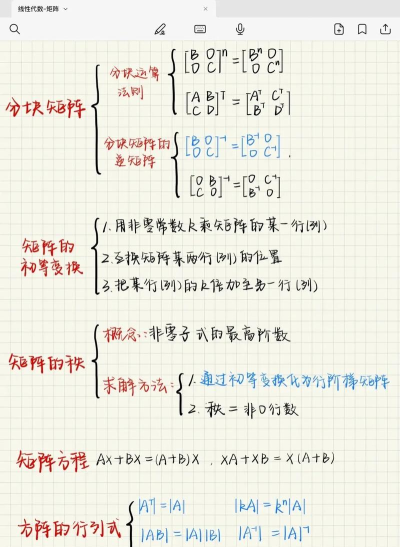 线性代数-矩阵
分块矩阵
分块运算法则
[B O; O C]ⁿ = [Bⁿ O; O Cⁿ]
[A B; C D]ᵀ = [Aᵀ Cᵀ; Bᵀ Dᵀ]
分块矩阵的逆矩阵
[B O; O C]⁻¹ = [B⁻¹ O; O C⁻¹].
[O B; C O]⁻¹ = [O C⁻¹; B⁻¹ O]
矩阵的初等变换
1.用非零常数k乘矩阵的某一行(列)
2.互换矩阵某两行(列)的位置
3.把某行(列)的k倍加至另一行(列)
矩阵的秩
概念:非零子式的最高阶数
求解方法:
1.通过初等变换化为行阶梯矩阵
2.秩=非0行数
矩阵方程 AX+BX=(A+B)X , XA+XB=X(A+B)
方阵的行列式
|Aᵀ|=|A| |kA|=kⁿ|A|
|AB|=|A||B| |A⁻¹|=|A|⁻¹